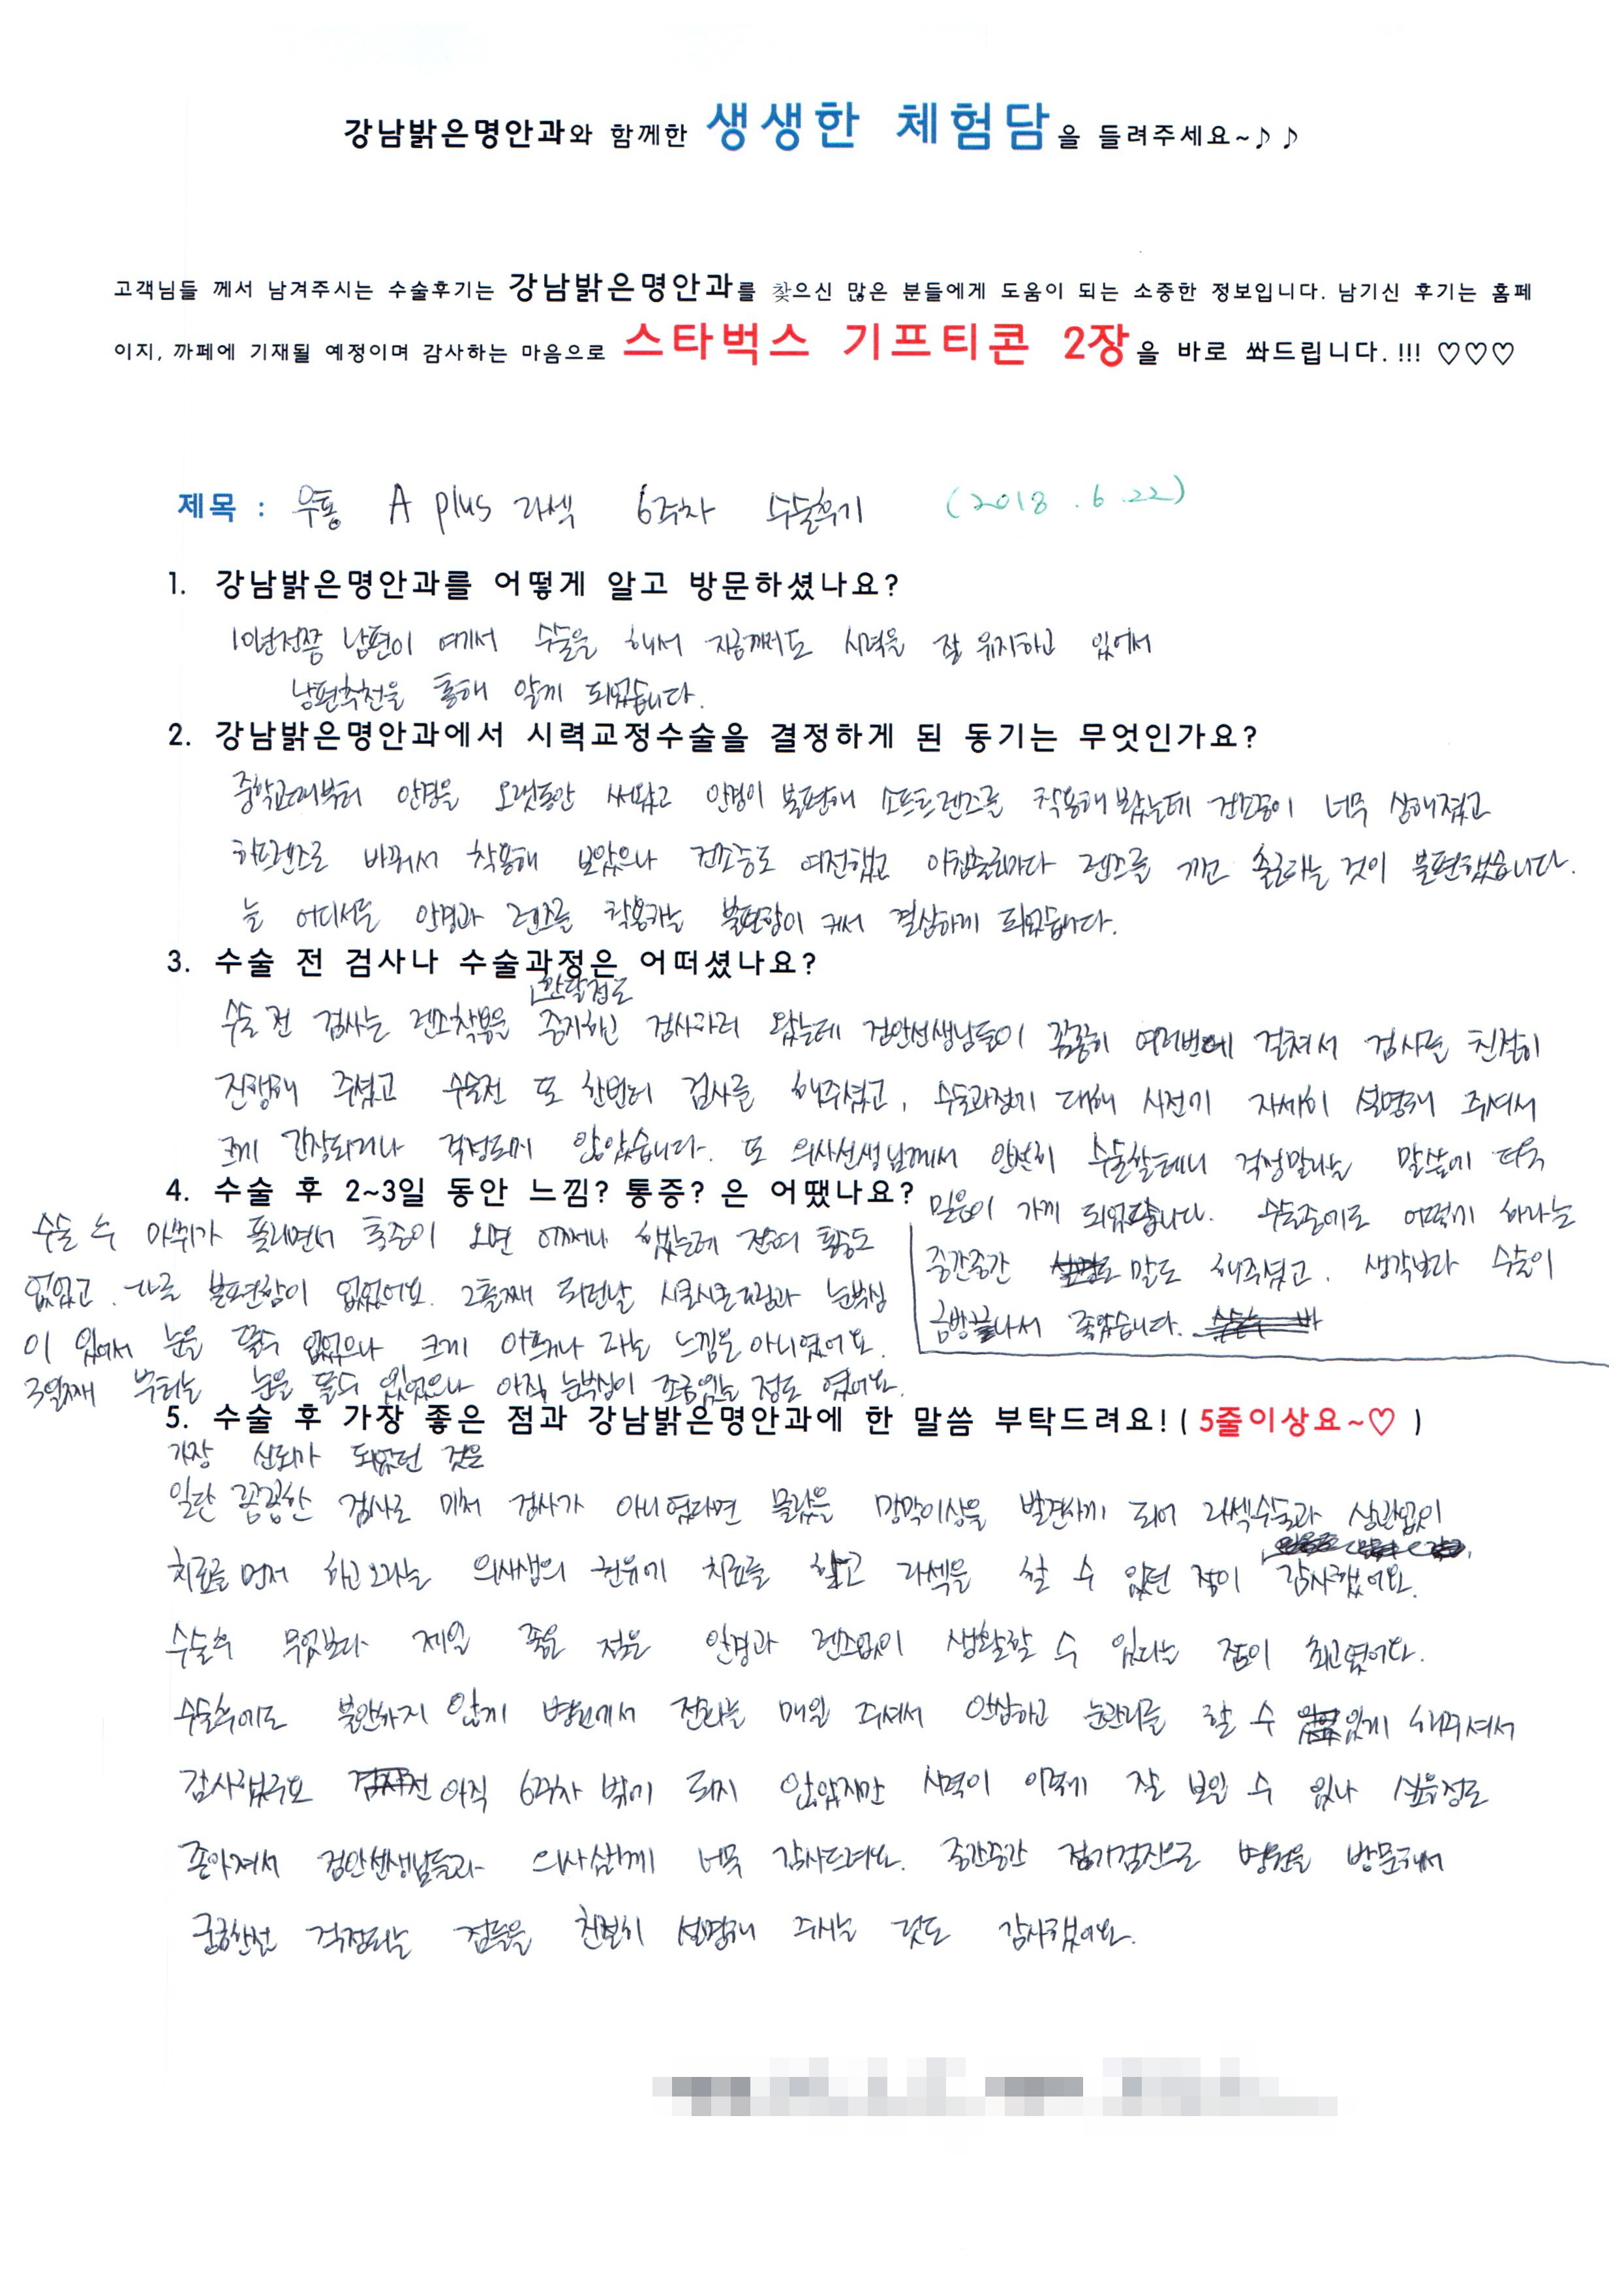 강남밝은명안과와 함께한 생생한 체험담을 들려주세요~♪♪
고객님들 께서 남겨주시는 수술후기는 강남밝은명안과를 찾으신 많은 분들에게 도움이 되는 소중한 정보입니다. 남기신 후기는 홈페
이지, 까페에 기재될 예정이며 감사하는 마음으로 스타벅스 기프티콘 2장을 바로 쏴드립니다.!!! ♡♡♡
제목 : 무통 A plus 라섹 6주차 수술후기 (2018.6.22)
1. 강남밝은명안과를 어떻게 알고 방문하셨나요?
10년전쯤 남편이 여기서 수술을 해서 지금까지도 시력을 잘 유지하고 있어서
남편추천을 통해 알게 되었습니다.
2. 강남밝은명안과에서 시력교정수술을 결정하게 된 동기는 무엇인가요?
중학교때부터 안경을 오랫동안 써왔고 안경이 불편해 소프트렌즈를 착용해 봤는데 건조증이 너무 심해졌고
하드렌즈로 바꿔서 착용해 보았으나 건조증도 여전했고 아침출근마다 렌즈를 끼고 출근하는 것이 불편했습니다.
늘 어디서든 안경과 렌즈를 착용하는 불편함이 커서 결심하게 되었습니다.
3. 수술 전 검사나 수술과정은 어떠셨나요?
한달정도
수술 전 검사는 렌즈착용을 중지하고 검사하러 왔는데 검안선생님들이 꼼꼼히 여러번에 걸쳐서 검사를 친절히
진행해 주셨고 수술전 또 한번더 검사를 해주셨고, 수술과정에 대해 사전에 자세히 설명해 주셔서
크게 긴장되거나 걱정되지 않았습니다. 또 의사선생님께서 안전히 수술할테니 걱정말라는 말씀에 더욱
믿음이 가게 되었습니다. 수술중에도 어떻게 하라는
중간중간 말도 해주셨고, 생각보다 수술이
금방끝나서 좋았습니다.
4. 수술 후 2~3일 동안 느낌? 통증? 은 어땠나요?
수술 후 마취가 풀리면서 통증이 오면 어쩌나 했는데 전혀 통증도
없었고, 다른 불편함이 없었어요. 2틀째 되던날 시큰시큰거림과 눈부심
이 있어서 눈을 뜰수 없었으나 크게 아프거나 하는 느낌은 아니였어요.
3일째 부터는 눈을 뜰수 있었으나 아직 눈부심이 조금있는 정도 였어요.
5. 수술 후 가장 좋은 점과 강남밝은명안과에 한 말씀 부탁드려요!( 5줄이상요~♡ )
가장 신뢰가 되었던 것은
일단 꼼꼼한 검사로 미처 검사가 아니였다면 몰랐을 망막이상을 발견하게 되어 라섹수술과 상관없이
치료를 먼저 하고오라는 의사샘의 권유에 치료를 할고 라섹을 할 수 있던 점이 감사했어요.
수술후 무엇보다 제일 좋은 점은 안경과 렌즈없이 생활할 수 있다는 점이 최고였어요.
수술후에도 불안하지 않게 병원에서 전화를 매일 주셔서 안심하고 눈관리를 할 수 있게 해주셔서
감사했구요 아직 6주차 밖에 되지 않았지만 시력이 이렇게 잘 보일 수 있나 싶을정도
좋아져서 검안선생님들과 의사샘께 너무 감사드려요. 중간중간 정기검진으로 병원을 방문해서
궁금한점 걱정되는 점들을 친절히 설명해 주시는 것도 감사했어요.